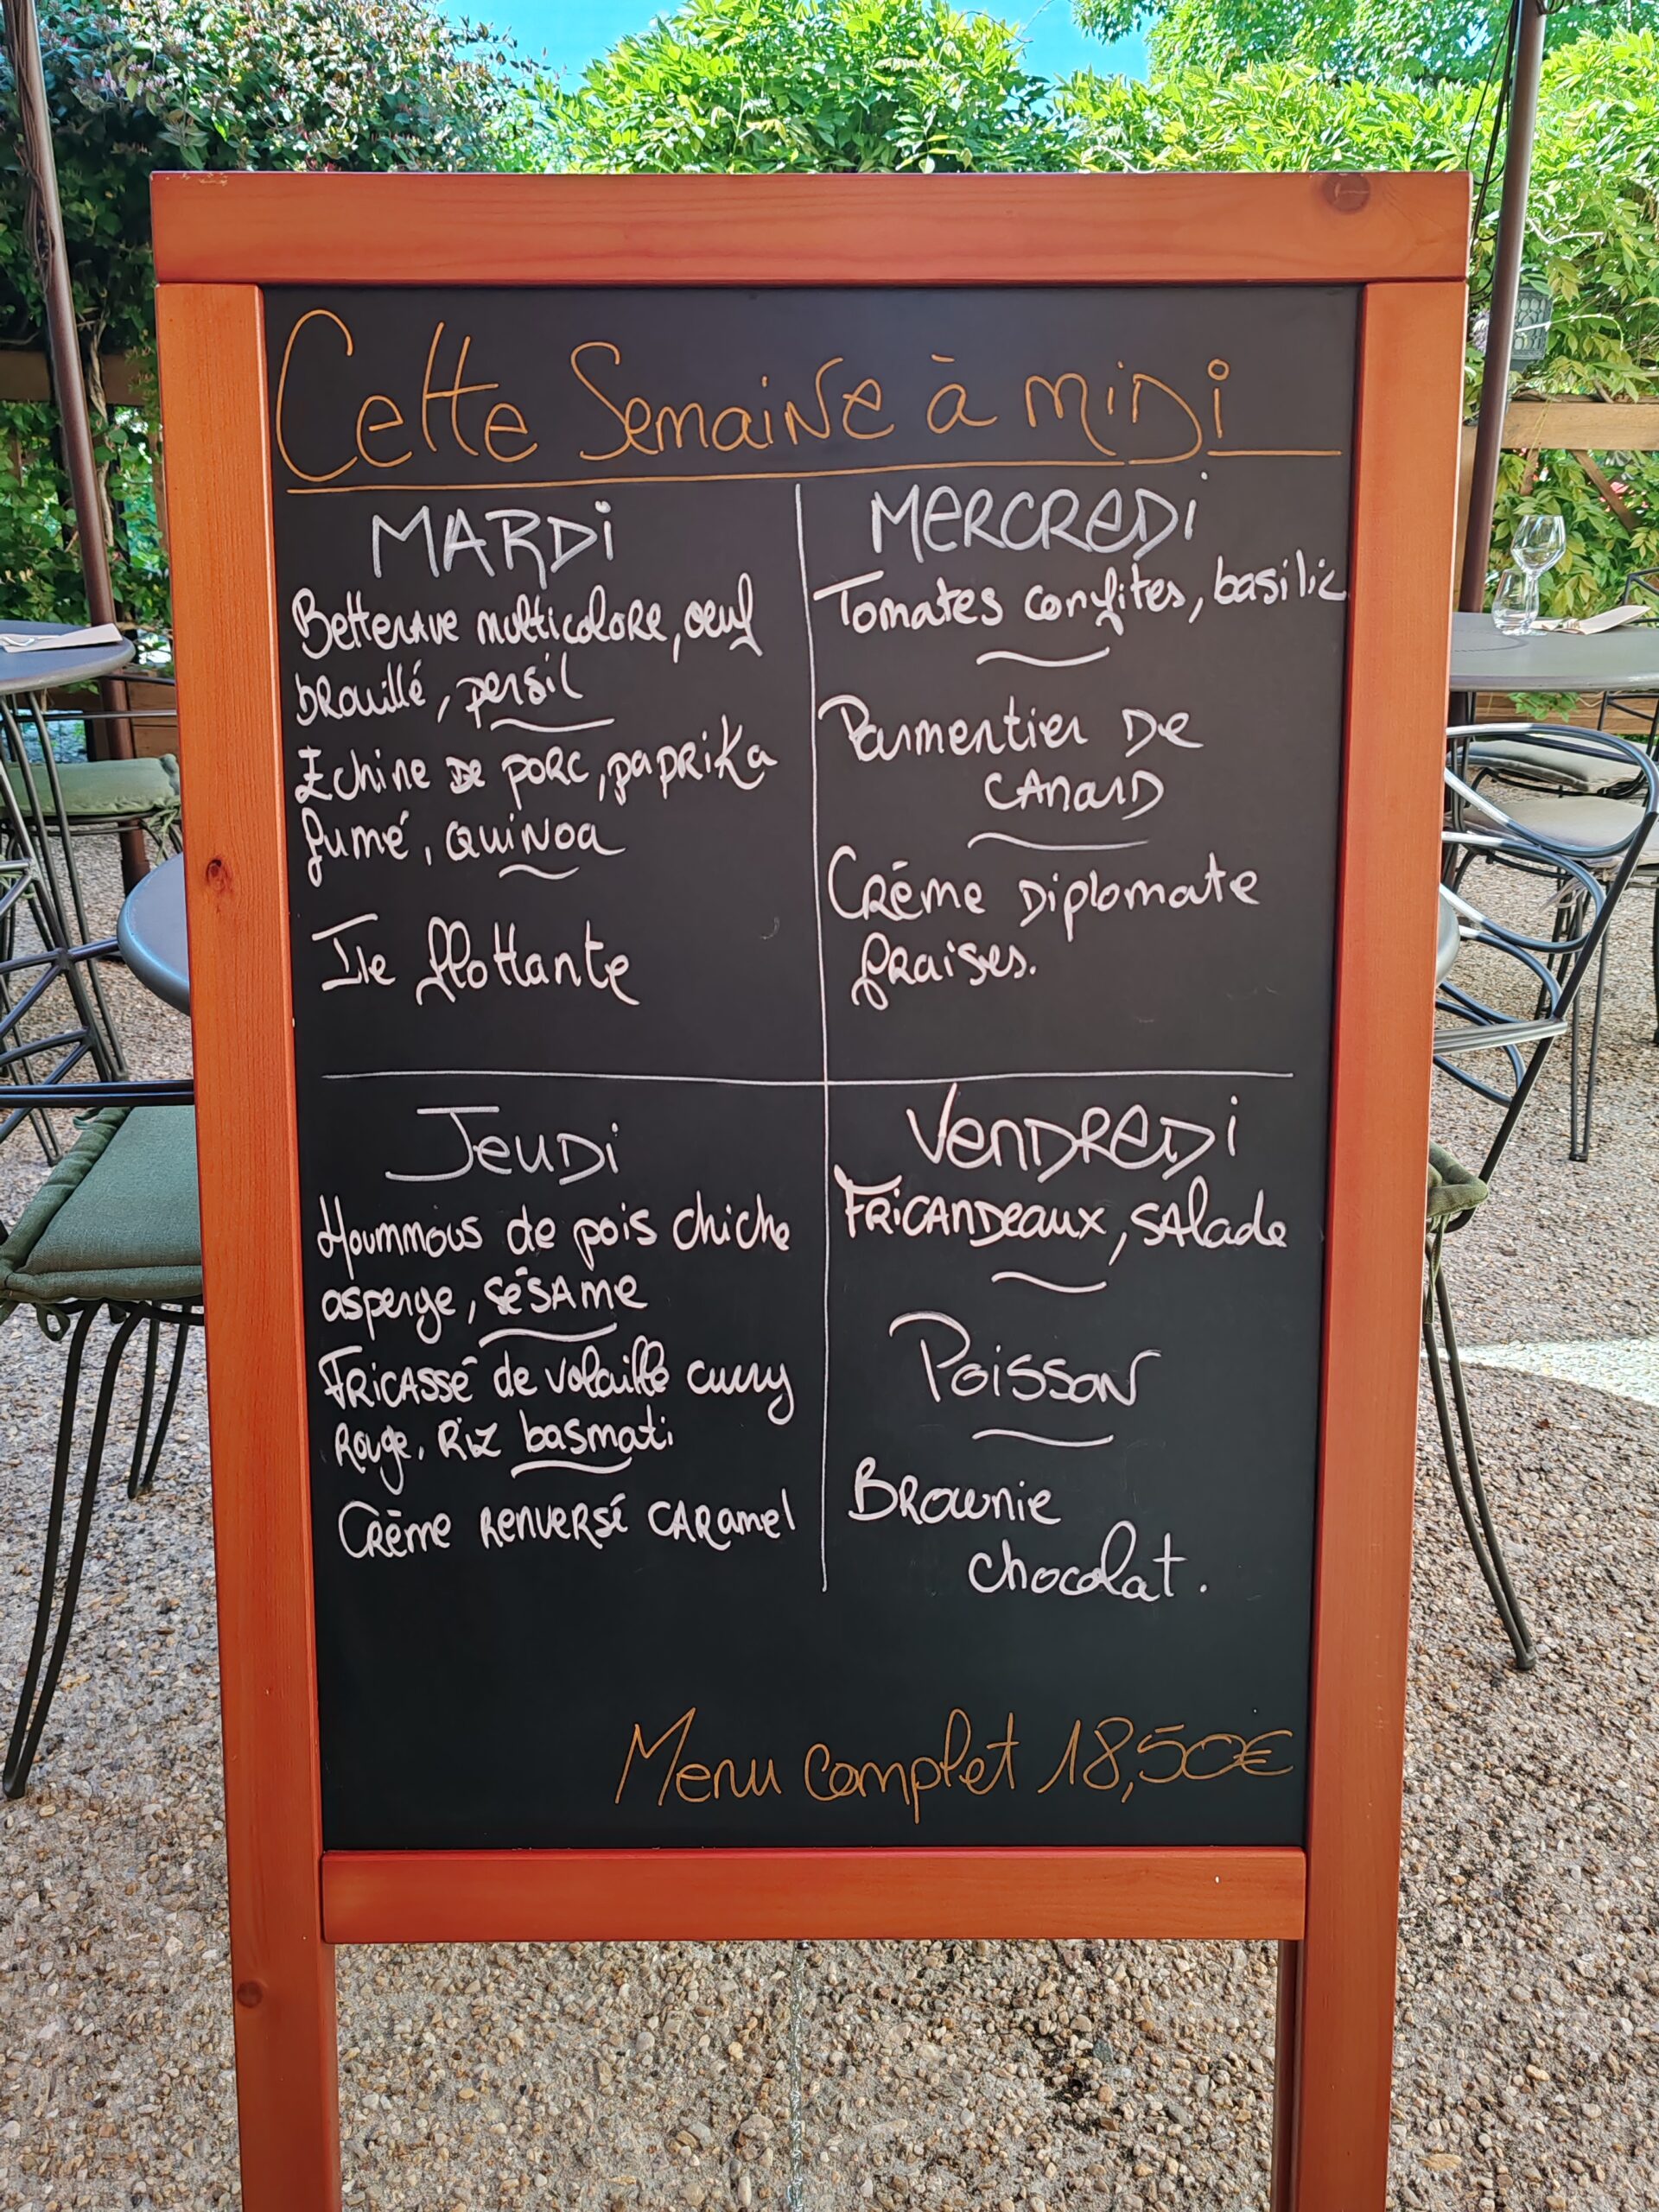 Cette Semaine à midi
MARDI
Betterave multicolore, oeuf
brouillé, persil
Echine de porc, paprika
fumé, quinoa
Ile flottante
MERCREDI
Tomates confites, basilic
Parmentier de
canard
Crème diplomate
fraises.
JEUDI
Hoummous de pois chiche
asperge, sésame
Fricassé de volaille curry
Rouge, Riz basmati
Crème renversé caramel
VENDREDI
Fricandeaux, salade
Poisson
Brownie
chocolat.
Menu complet 18,50€